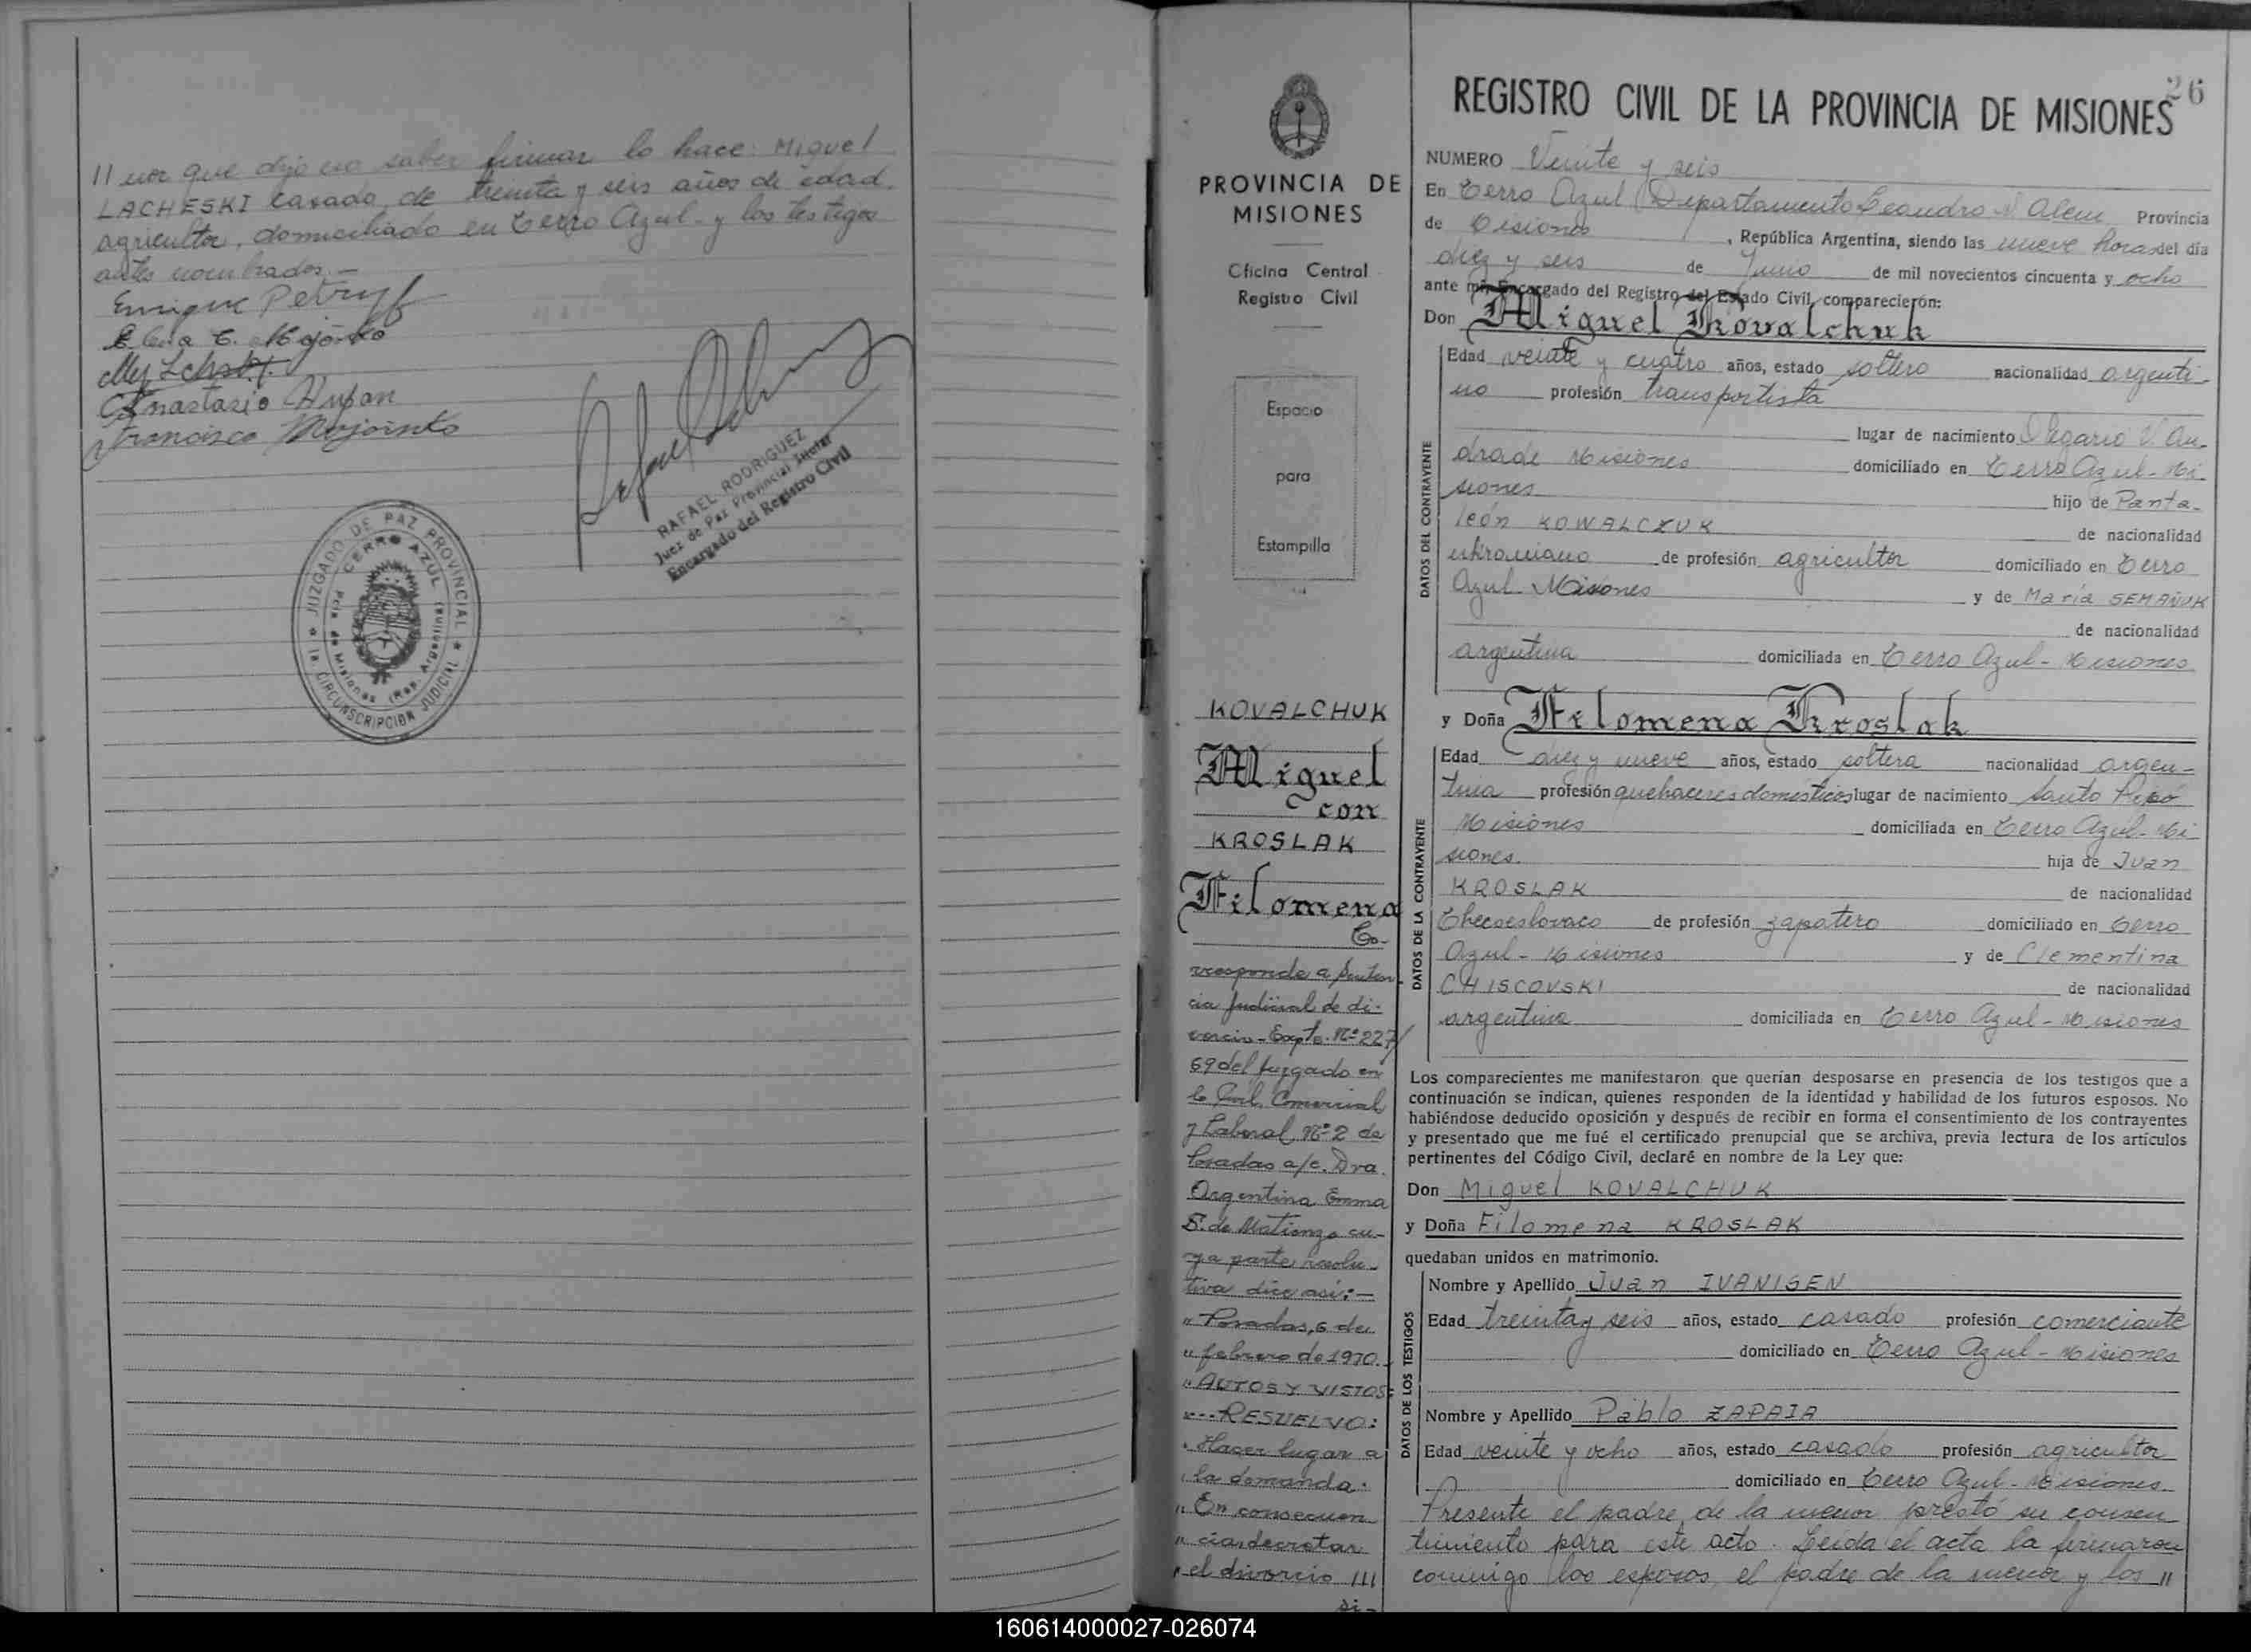 // nor que dijo no saber firmar lo hace: Miguel
LACHESKI casado, de treinta y seis años de edad,
agricultor, domiciliado en Cerro Azul - y los testigos
antes nombrados.-
Enrique Petryf
Anastasio Hupan
Francisco Mojoinko
RAFAEL RODRIGUEZ
Juez de Paz Provincial Titular
Encargado del Registro Civil
JUZGADO DE PAZ PROVINCIAL
CERRO AZUL
Pcia de Misiones (Rep. Argentina)
1a CIRCUNSCRIPCION JUDICIAL
PROVINCIA DE
MISIONES
Oficina Central
Registro Civil
Espacio
para
Estampilla
KOVALCHUK
Miguel
con
KROSLAK
Filomena
Co-
rresponde a senten
cia judicial de di-
vorcio - Expte. Nº 227/
69 del juzgado en
lo Civil, Comercial
y Laboral Nº 2 de
Posadas a/c. Dra.
Argentina Emma
S. de Matienzo cu-
ya parte resolu-
tiva dice así:-
" Posadas, 6 de
" febrero de 1970.-
" AUTOS Y VISTOS:
"... RESUELVO:
" Hacer lugar a
" la demanda.
" En consecuen
" cia, decretar
" el divorcio ///
si-
26
REGISTRO CIVIL DE LA PROVINCIA DE MISIONES
NUMERO Veinte y seis
En Cerro Azul Departamento Leandro N. Alem Provincia
de Misiones, República Argentina, siendo las nueve horas del día
diez y seis de Junio de mil novecientos cincuenta y ocho
ante mí, Encargado del Registro del Estado Civil, comparecierón:
Don Miguel Kovalchuk
DATOS DEL CONTRAYENTE
Edad veinte y cuatro años, estado soltero nacionalidad argenti-
no profesión transportista
lugar de nacimiento Olegario V. An-
drade Misiones domiciliado en Cerro Azul - Mi-
siones hijo de Panta-
león KOWALCZUK de nacionalidad
ukraniano de profesión agricultor domiciliado en Cerro
Azul - Misiones y de María SEMAÑUK
de nacionalidad
argentina domiciliada en Cerro Azul - Misiones
y Doña Filomena Kroslak
DATOS DE LA CONTRAYENTE
Edad diez y nueve años, estado soltera nacionalidad argen-
tina profesión quehaceres domésticos lugar de nacimiento Santo Pipó
Misiones domiciliada en Cerro Azul - Mi-
siones. hija de Juan
KROSLAK de nacionalidad
Checoeslovaco de profesión zapatero domiciliado en Cerro
Azul - Misiones y de Clementina
CHISCOVSKI de nacionalidad
argentina domiciliada en Cerro Azul - Misiones
Los comparecientes me manifestaron que querían desposarse en presencia de los testigos que a
continuación se indican, quienes responden de la identidad y habilidad de los futuros esposos. No
habiéndose deducido oposición y después de recibir en forma el consentimiento de los contrayentes
y presentado que me fué el certificado prenupcial que se archiva, previa lectura de los artículos
pertinentes del Código Civil, declaré en nombre de la Ley que:
Don Miguel KOVALCHUK
y Doña Filomena KROSLAK
quedaban unidos en matrimonio.
DATOS DE LOS TESTIGOS
Nombre y Apellido Juan IVANISEN
Edad treinta y seis años, estado casado profesión comerciante
domiciliado en Cerro Azul - Misiones
Nombre y Apellido Pablo ZAPAIA
Edad veinte y ocho años, estado casado profesión agricultor
domiciliado en Cerro Azul - Misiones.
Presente el padre de la menor prestó su consen
timiento para este acto. Leída el acta la firmaron
conmigo los esposos, el padre de la menor y los //
160614000027-026074